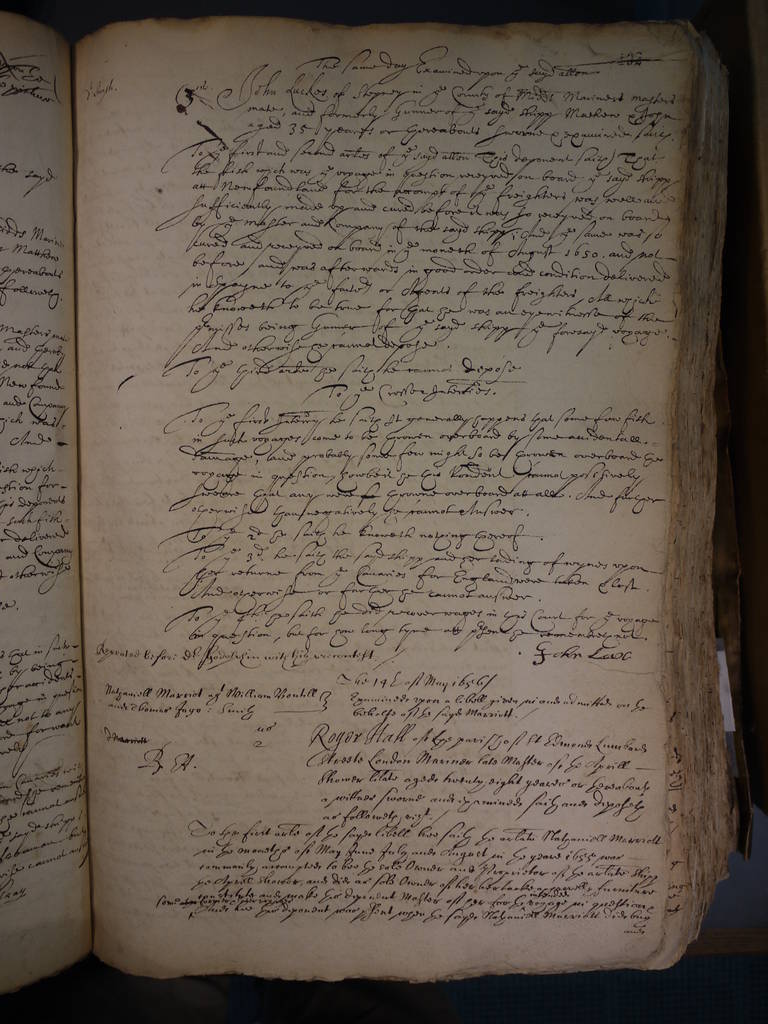 The same day Examined upon ye sayd allon
John Luckes of Stepney in ye County of Middx Mariner masters
mate, and formerly Gunner of ye sayd shipp Mathew & John
aged 35 yeares or thereabouts sworne & examined saith
To ye first and second arles of ye sayd allon this deponent saith That
the fish which was ye voyage in question receyved on board ye sayd shipp
at Newfoundland for the accompt of ye freighters was well and
sufficiently made up and cured before it was so receyved on board
by ye master and Company of the sayd shipp, And ye same was so
cured and receyved on board in ye moneth of August 1650. and not
before, and was afterwards in good order and condition delivered
in Spayne to ye factors or Agents of the freighters, All which
he knoweth to be true for that he was an eyewitnesse of the
premisses being Gunner of ye sayd shipp ye foresayd voyage.
And otherwise he cannot depose.
To ye third arle he saith he cannot depose
To ye Crosse Interries.
To ye first Interry he saith It generally happens that some few fish
in such voyages come to be throwen overboard by some accidentall
damage, and probably some few might so be throwen overboard the
voyage in question, howbeit he this Rondent cannot possitively
sweare that any were throwne overboard at all. And further
otherwise than negatively he cannot Answer.
To ye 2d he saith he knoweth nothing thereof.
To ye 3d. he saith the sayd shipp and her lading of wynes upon
her returne from ye Canaries for England were taken & lost.
And otherwise or further he cannot answer.
To ye 4th he saith he did recover wages in this Court for ye voyage
in question, but for how long tyme at prsent he remembreth not.
Repeated before Dr Godolphin with his
John Luce
The 14th of May 1656
Nathaniell Marriot agt William
and Thomas Jngo: Smith
Examined upon a libell given in and admitted on the
behalfe of the sayd Marriott.
R H.
Roger Hall of the parish of St Edmond Lumbard
streete London Mariner late Master of the Aprill
shower late aged twenty eight yeares or thereabouts
a witnes sworne and examined saith and deposeth
as followeth, vizt.
To the first arle of the sayd libell hee saith the arlate Nathaniell Marriott
in the moneths of May June July and August in the yeare 1655 was
commonly accompted to bee the sole Owner and Proprietor of the arlate shipp
the Aprill shower, and did as sole Owner of her her tackle apparrell & furniture
and make this deponent Master of her for the voyage in question
And hee this deponent was psent when the sayd Nathaniell Marriott did buy
and